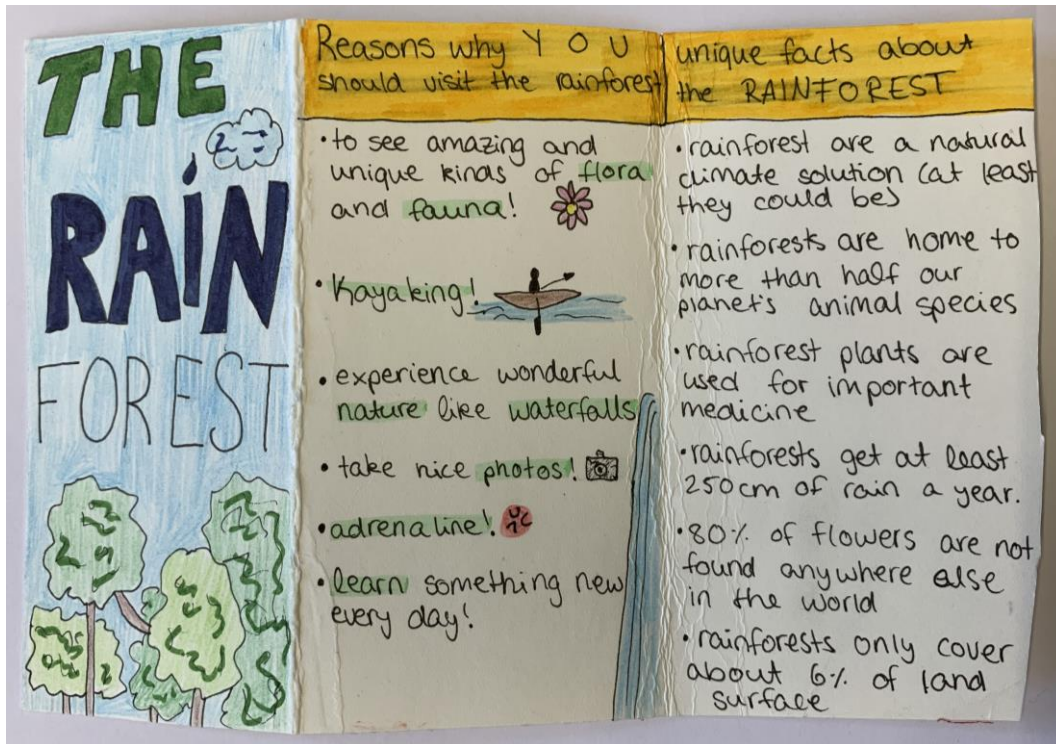 THE
RAIN
FOREST
Reasons why YOU
should visit the rainforest
• to see amazing and
unique kinds of flora
and fauna!
• Kayaking!
• experience wonderful
nature like waterfalls
• take nice photos!
• adrenaline!
• learn something new
every day!
unique facts about
the RAINFOREST
• rainforest are a natural
climate solution (at least
they could be)
• rainforests are home to
more than half our
planet's animal species
• rainforest plants are
used for important
medicine
• rainforests get at least
250cm of rain a year.
• 80% of flowers are not
found anywhere else
in the world
• rainforests only cover
about 6% of land
surface